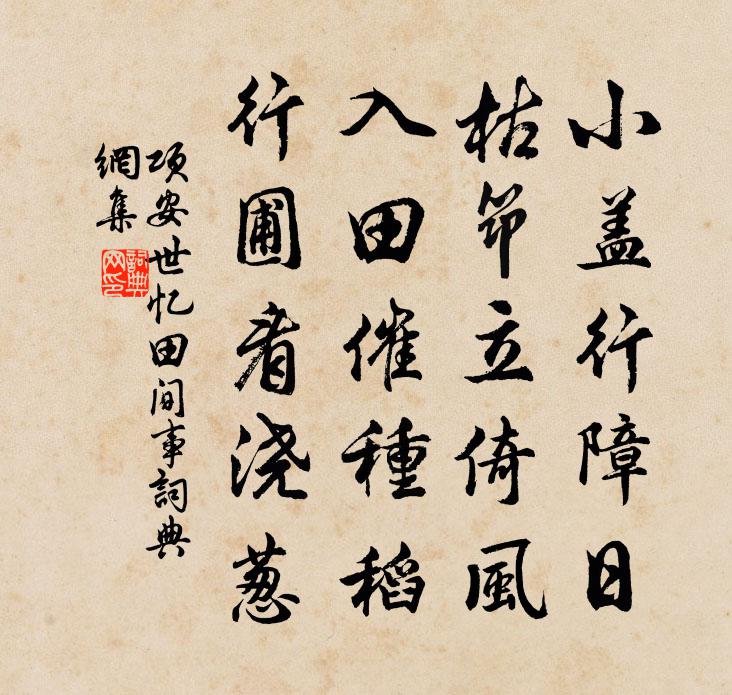 小盖行障日
枯筇立倚風
入田催種稻
行圃看浇葱
项安世忆田间事詞典
網集
詞典
网印